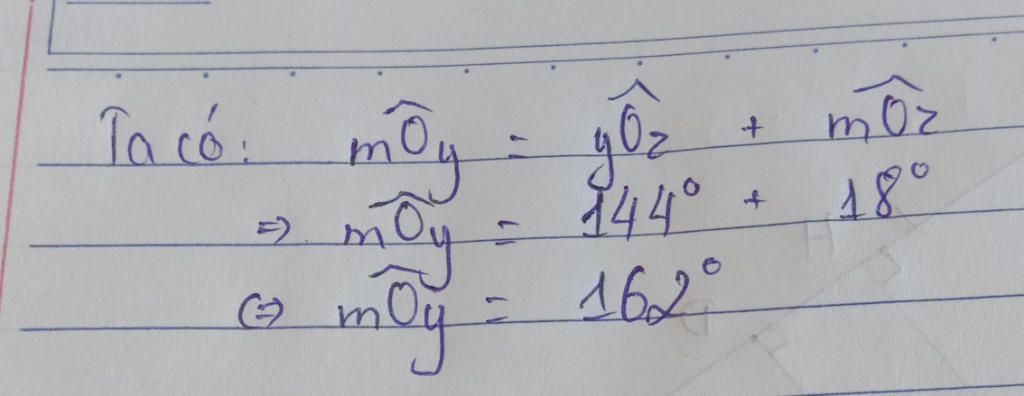 Ta có: m\widehat{O}y = y\widehat{O}z + m\widehat{O}z
=> m\widehat{O}y = 144° + 18°
<=> m\widehat{O}y = 162°